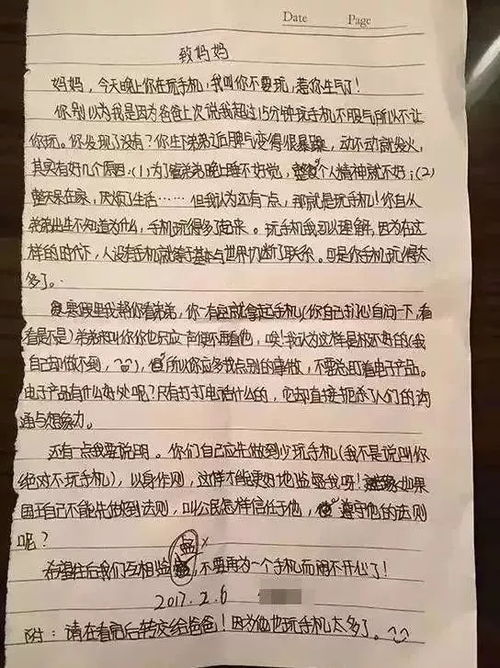 Date Page
致妈妈
妈妈，今天晚上你在玩手机，我叫你不要玩，惹你生气了！
你别以为我是因为爸爸上次说我超过15分钟玩手机不服气所以不让
你玩。你发现了没有？你生下弟弟后脾气变得很暴躁，动不动就发火，
其实有好几个原因，(1)为了管弟弟晚上睡不好觉，整个人精神就不好；(2)
整天呆在家，厌烦了生活……但我认为还有一点，那就是玩手机！你自从
弟弟出生不知道为什么，手机玩得多了起来。玩手机我可以理解，因为在这
样的时代下，人没有手机就等于基本与世界切断了联系。可是你手机玩得太
多了。
寒假里我帮你看弟弟，你一有空就拿起手机(你自己扪心自问一下，看
看是不是)弟弟来叫你你也只应一声便不再看他，唉！我认为这样是极不好的(我
自己却做不到，)，所以你应多找点别的事做，不要总盯着电子产品。
电子产品有什么好处呢？只有打打电话什么的，它却直接扼杀了人们的沟
通与想象力。
还有一点我要说明。你们自己应先做到少玩手机(我不是说叫你
绝对不玩手机)，以身作则，这样才能更好地监督我呀！如果
国王自己不能先做到法则，叫公民怎样信任于他，遵守他的法则
呢？
希望往后我们互相监督，不要再为一个手机而闹不开心了！
2017.2.6
附：请在看后转交给爸爸！因为他也玩手机太多了。